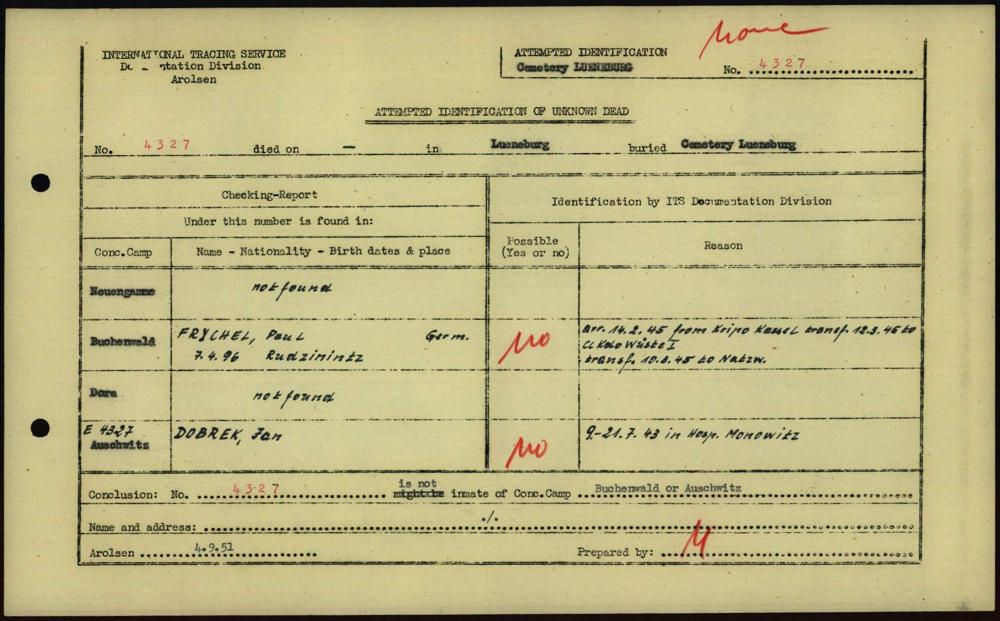 None
INTERNATIONAL TRACING SERVICE
Documentation Division
Arolsen
ATTEMPTED IDENTIFICATION
Cemetery LUENEBURG
No. 4327
ATTEMPTED IDENTIFICATION OF UNKNOWN DEAD
No. 4327 died on — in Lueneburg buried Cemetery Lueneburg
Checking-Report
Identification by ITS Documentation Division
Under this number is found in:
Conc.Camp Name - Nationality - Birth dates & place
Possible
(Yes or no)
Reason
Neuengamme not found
Buchenwald FRYCHEL, Paul Germ.
7.4.96 Rudzinintz
no
arr. 14.2.45 from Kripo Kassel transf. 12.3.45 to
Wüste I
transf. 10.3.45 to Natzw.
Dora not found
E 4327
Auschwitz
DOBREK, Jan
no
9.-21.7.43 in Hosp. Monowitz
is not
Conclusion: No. 4327 might be inmate of Conc.Camp Buchenwald or Auschwitz
Name and address: ./.
Arolsen 4.9.51 Prepared by: